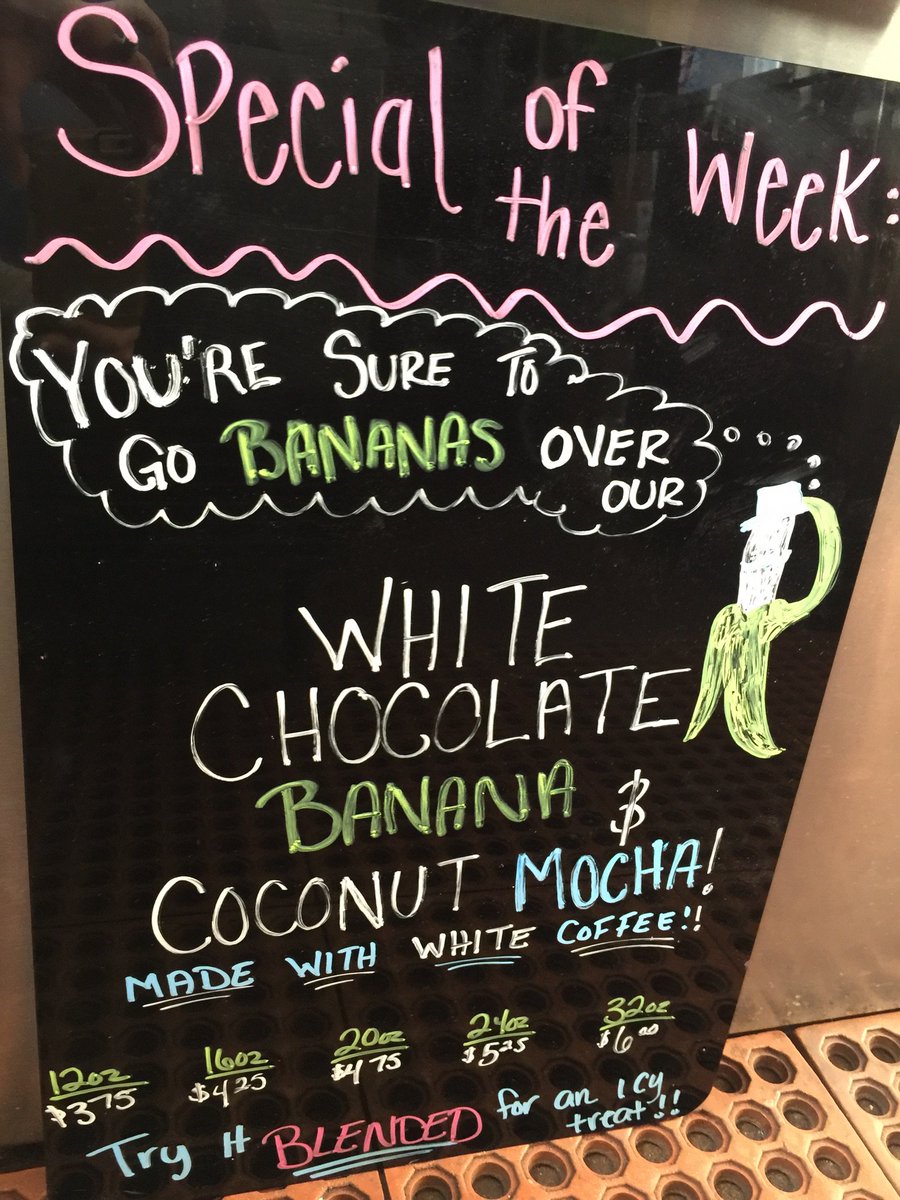 Special of the Week:
YOU'RE SURE TO
GO BANANAS OVER OUR
WHITE
CHOCOLATE
BANANA &
COCONUT MOCHA!
MADE WITH WHITE COFFEE!!
12oz 16oz 20oz 24oz 32oz
$3.75 $4.25 $4.75 $5.25 $6.00
Try It BLENDED for an Icy treat!!